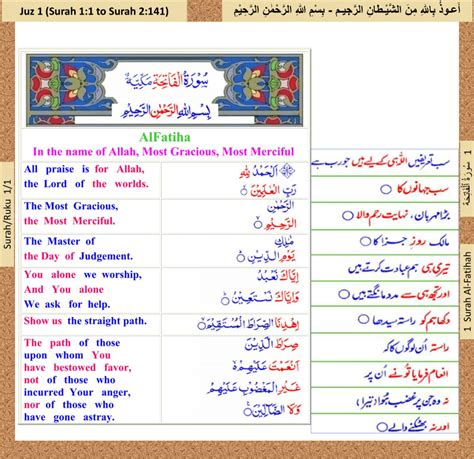 Juz 1 (Surah 1:1 to Surah 2:141)
أَعـوذُ بِاللهِ مِنَ الشَّيْـطانِ الرَّجيـم - بِسْمِ اللهِ الرَّحْمٰنِ الرَّحِيْمِ
سُوْرَةُ الْفَاتِحَةِ مَكِّيَّةٌ
بِسْمِ اللهِ الرَّحْمٰنِ الرَّحِيْمِ
AlFatiha
In the name of Allah, Most Gracious, Most Merciful
All praise is for Allah,
the Lord of the worlds.
اَلْحَمْدُ لِلّٰهِ
رَبِّ الْعٰلَمِيْنَ
سب تعریفیں اللہ ہی کے لیے ہیں جو رب ہے
سب جہانوں کا
The Most Gracious,
the Most Merciful.
الرَّحْمٰنِ
الرَّحِيْمِ
بڑا مہربان، نہایت رحم والا
The Master of
the Day of Judgement.
مٰلِكِ
يَوْمِ الدِّيْنِ
مالک روزِ جزا کا
You alone we worship,
And You alone
We ask for help.
اِيَّاكَ نَعْبُدُ
وَاِيَّاكَ نَسْتَعِيْنُ
تیری ہی ہم عبادت کرتے ہیں
اور تجھ ہی سے مدد مانگتے ہیں
Show us the straight path.
اِهْدِنَا الصِّرَاطَ الْمُسْتَقِيْمَ
دکھا ہم کو راستہ سیدھا
The path of those
upon whom You
have bestowed favor,
not of those who
incurred Your anger,
nor of those who
have gone astray.
صِرَاطَ الَّذِيْنَ
اَنْعَمْتَ عَلَيْهِمْ
غَيْرِ الْمَغْضُوْبِ عَلَيْهِمْ
وَلَا الضَّآلِّيْنَ
راستہ اُن لوگوں کا کہ
انعام فرمایا تُو نے اُن پر
نہ وہ جن پر غضب ہوا تیرا،
اور نہ بھٹکنے والے
Surah/Ruku 1/1
1 سُوْرَةُ الْفَاتِحَة
1 Surah Al-Fatihah